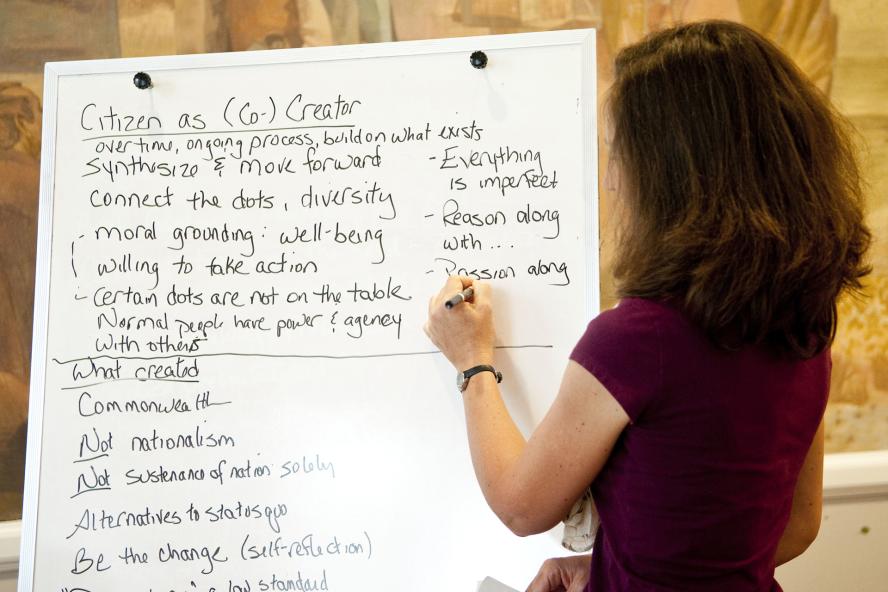 Citizen as (Co-) Creator
over time, ongoing process, build on what exists
synthesize & move forward
connect the dots, diversity
- moral grounding: well-being
willing to take action
- Certain dots are not on the table
Normal people have power & agency
with others
- Everything
is imperfect
- Reason along
with...
- Passion along
What created
Commonwealth
Not nationalism
Not sustenance of nation solely
Alternatives to status quo
Be the change (self-reflection)
a low standard